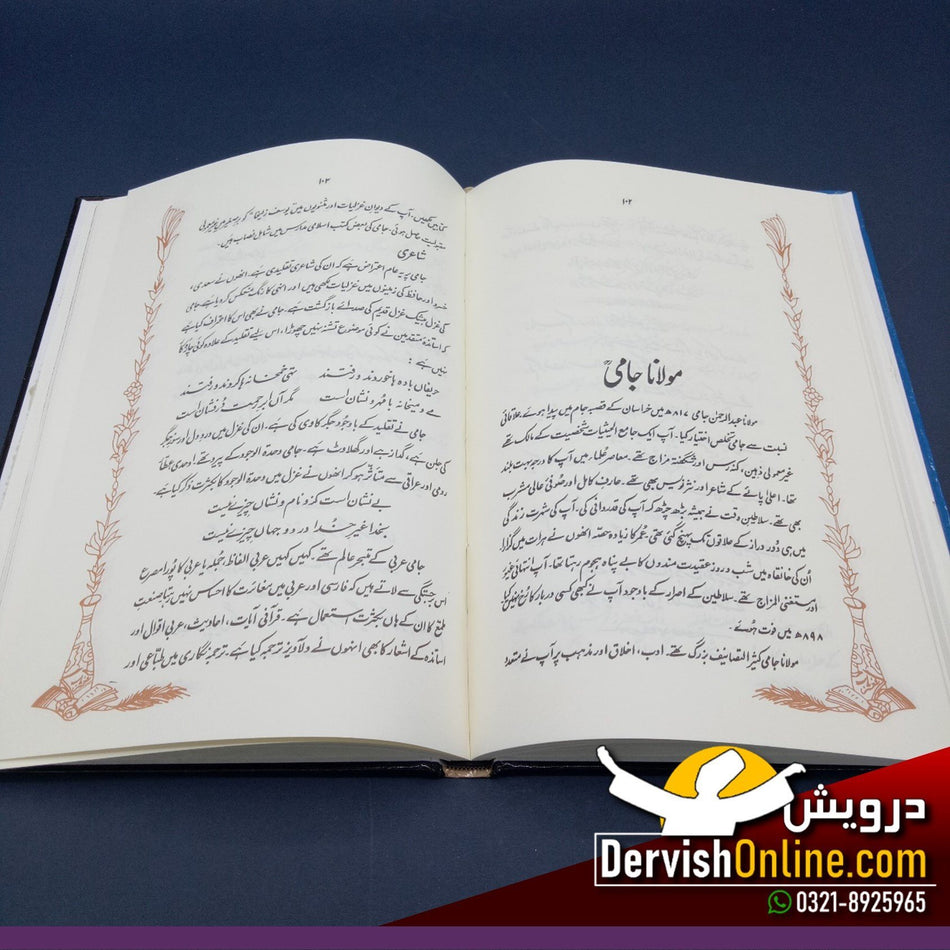 ۱۰۲
مولانا جامیؒ
مولانا عبدالرحمٰن جامی ۸۱۷ھ میں خراسان کے قصبہ جام میں پیدا ہوئے۔ علاقائی
نسبت سے جامی تخلص اختیار کیا۔ آپ ایک جامع الحیثیات شخصیت کے مالک تھے
غیر معمولی ذہین، نکتہ رس اور شگفتہ مزاج تھے۔ معاصر علماء میں آپ کا درجہ بہت بلند
تھا۔ اعلیٰ پائے کے شاعر اور نثر نویس بھی تھے۔ عارف کامل اور صوفی عالی مشرب
بھی تھے۔ سلاطینِ وقت نے ہمیشہ بڑھ چڑھ کر آپ کی قدردانی کی۔ آپ کی شہرت زندگی
میں ہی دور دراز کے علاقوں تک پہنچ گئی تھی۔ عمر کا زیادہ حصہ انھوں نے ہرات میں گزارا
اُن کی خانقاہ میں شب و روز عقیدت مندوں کا بے پناہ ہجوم رہتا تھا۔ آپ انتہائی غیور
اور مستغنی المزاج تھے۔ سلاطین کے اصرار کے باوجود آپ نے کبھی کسی دربار کا رخ نہیں کیا
۸۹۸ھ میں فوت ہوئے۔
مولانا جامی کثیر التصانیف بزرگ تھے۔ ادب، اخلاق اور مذہب پر آپ نے متعدد
۱۰۳
کتابیں لکھیں۔ آپ کے دیوان غزلیات اور مثنویوں میں یوسف زلیخا کو برصغیر میں
مقبولیت حاصل ہوئی۔ جامی کی بعض کتب اسلامی مدارس میں شامل نصاب ہیں۔
شاعری
جامی پہ یہ عام اعتراض ہے کہ ان کی شاعری تقلیدی ہے۔ انھوں نے سعدی،
خسرو اور حافظ کی زمینوں میں غزلیات لکھی ہیں اور انہی کا رنگ منعکس کر دیا ہے۔ جامی
کی غزل بیشک غزلِ قدیم کی صدائے بازگشت ہے۔ جامی نے بھی اس کا اعتراف کیا ہے
کہ اساتذہ متقدمین نے کوئی موضوع تشنہ نہیں چھوڑا، اس لیے تقلید کے علاوہ کوئی چارہ کار
نہیں ہے:
حریفاں بادہ ہا خوردند و رفتند تہی خمخانہ ہا کردند و رفتند
مے و میخانہ با مہر و نشان است مگر آں ابرِ رحمت دُر فشان است
جامی نے تقلید کے باوجود جگر کاوی کی ہے، ان کی غزل میں درد دل اور سوز جگر
کی جلن ہے، گداز ہے اور گھلاوٹ ہے۔ جامی وحدۃ الوجود کے پیرو تھے۔ اوحدی عطّار
رومی اور عراقی سے متاثر ہو کر انھوں نے غزل میں وحدۃ الوجود کا بکثرت ذکر کیا ہے۔
بے نشان است کزو نام و نشاں چیزے نیست
بخدا غیر خدا در دو جہاں چیزے نیست
جامی عربی کے متبحر عالم تھے۔ کہیں کہیں عربی الفاظ، جملہ یا عربی کا پورا مصرع
اس برجستگی سے لاتے ہیں کہ فارسی اور عربی میں مغائرت کا احساس نہیں رہتا۔ صنعت
طمع کا ان کے ہاں بکثرت استعمال ہے۔ قرآنی آیات، احادیث، عربی اقوال اور
اساتذہ کے اشعار کا بھی انہوں نے دلآویز ترجمہ کیا ہے۔ ترجمہ نگاری میں طباعی اور
درویش
DervishOnline.com
0321-8925965